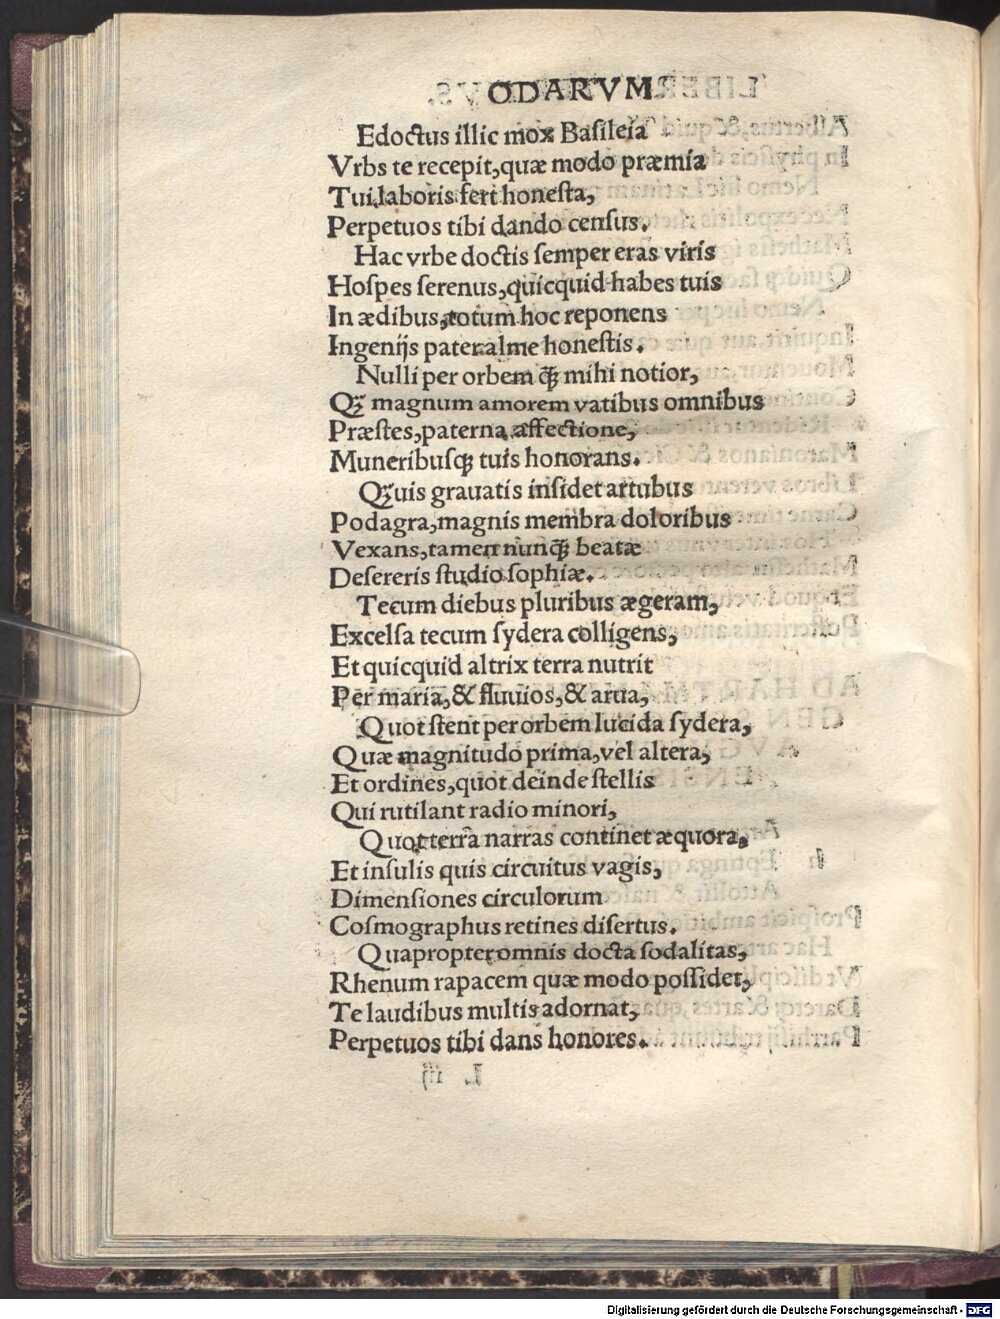 ODARVM
Edoctus illic mox Basileia
Vrbs te recepit, quæ modo præmia
Tui laboris fert honesta,
Perpetuos tibi dando census.
Hac vrbe doctis semper eras viris
Hospes serenus, quicquid habes tuis
In ædibus, totum hoc reponens
Ingenijs pater alme honestis.
Nulli per orbem q̃ȝ mihi notior,
Qȝ magnum amorem vatibus omnibus
Præstes, paterna affectione,
Muneribusqȝ tuis honorans.
Qȝuis grauatis insidet artubus
Podagra, magnis membra doloribus
Vexans, tamen nunq̃ȝ beatæ
Desereris studio sophiæ.
Tecum diebus pluribus ægeram,
Excelsa tecum sydera colligens,
Et quicquid altrix terra nutrit
Per maria, & fluuios, & arua,
Quot stent per orbem lucida sydera,
Quæ magnitudo prima, vel altera,
Et ordines, quot deinde stellis
Qui rutilant radio minori,
Quot terra narras continet æquora,
Et insulis quis circuitus vagis,
Dimensiones circulorum
Cosmographus retines disertus.
Quapropter omnis docta sodalitas,
Rhenum rapacem quæ modo possidet,
Te laudibus multis adornat,
Perpetuos tibi dans honores.
Digitalisierung gefördert durch die Deutsche Forschungsgemeinschaft - DFG